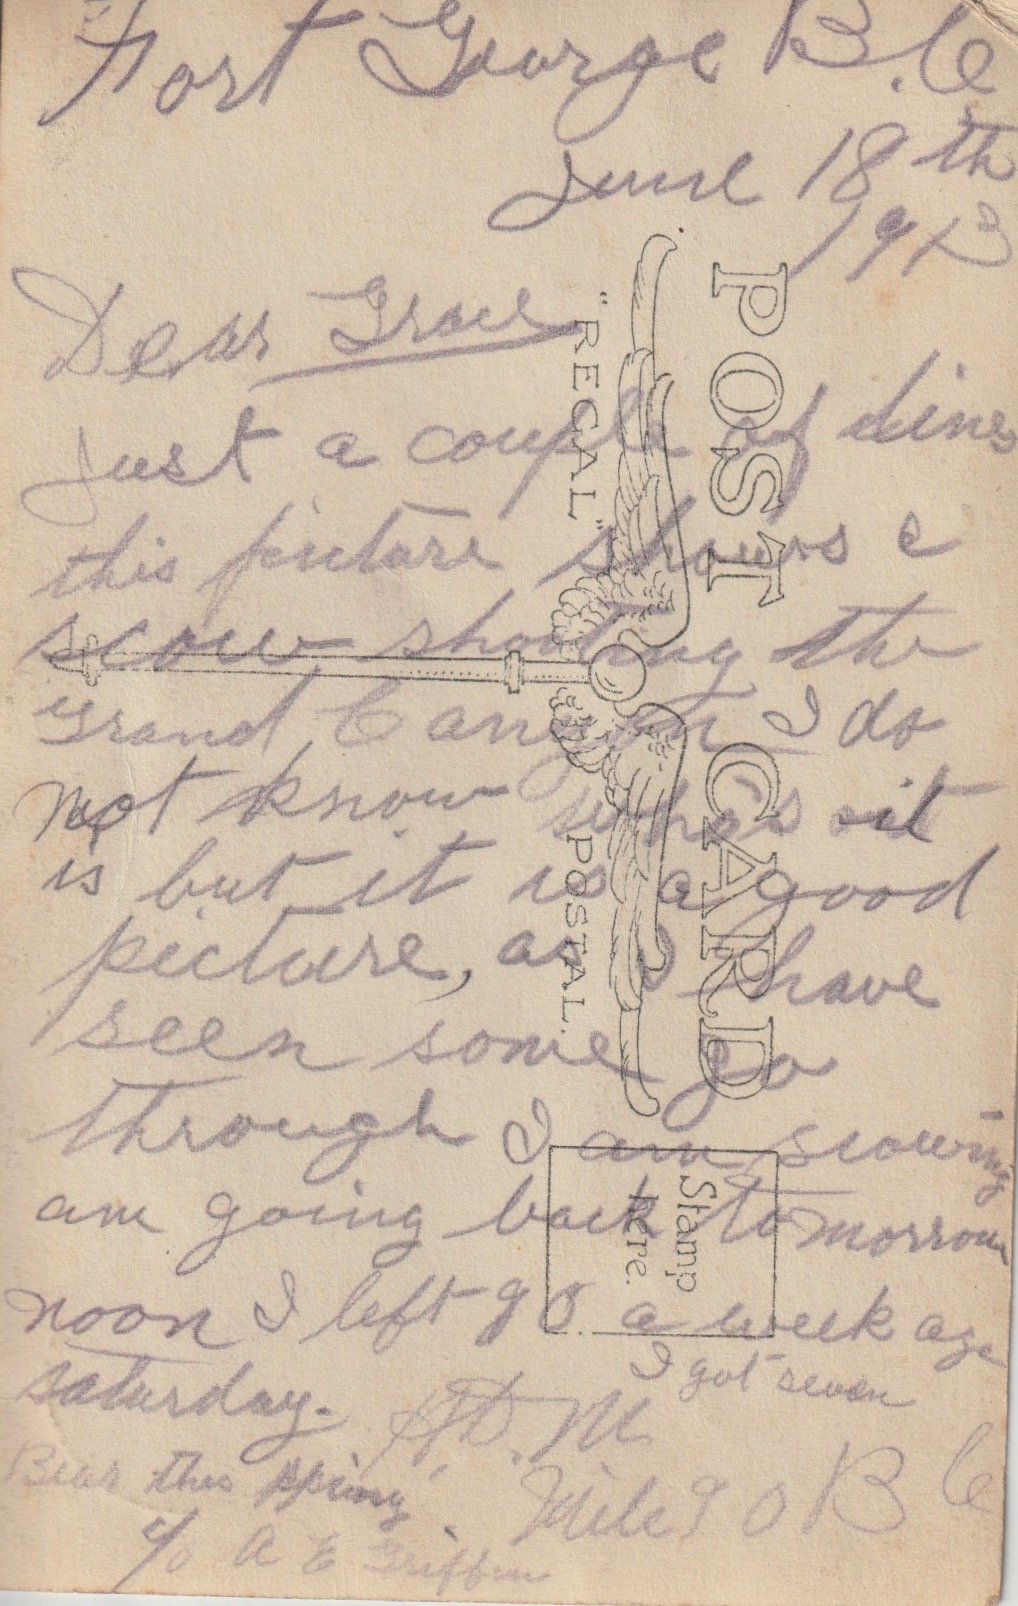 Fort George B.C.
June 18th
1913
Dear Grace
Just a couple of lines
this picture shows a
scow shooting the
Grand Canyon I do
not know who's it
is but it is a good
picture, as I have
seen some go
through I am scowing
am going back tomorrow
noon I left 90 a week ago
saturday. H.D.M.
I got seven
Bear this spring
Mile 90 B C
c/o A E Griffin
POST CARD
"REGAL" POSTAL.
Stamp
Here.